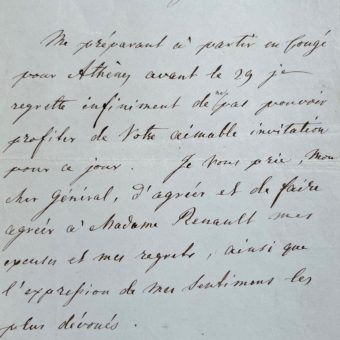 Me préparant à partir en Congé
pour Athènes avant le 29 je
regrette infiniment de ne pas pouvoir
profiter de Votre aimable invitation
pour ce jour. Je vous prie, mon
cher Général, d'agréer et de faire
agréer à Madame Renault mes
excuses et mes regrets, ainsi que
l'expression de mes sentimens les
plus dévoués.